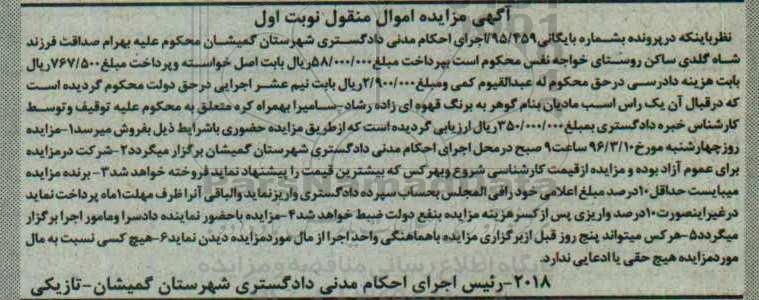 آگهی مزایده اموال منقول نوبت اول
نظرباینکه درپرونده بشماره بایگانی۹۵/۴۵۹/اجرای احکام مدنی دادگستری شهرستان گمیشان محکوم علیه بهرام صداقت فرزند
شاه گلدی ساکن روستای خواجه نفس محکوم است بپرداخت مبلغ۵۸/۰۰۰/۰۰۰ریال بابت اصل خواسته وپرداخت مبلغ۷۶۷/۵۰۰ریال
بابت هزینه دادرسی درحق محکوم له عبدالقیوم کمی ومبلغ۲/۹۰۰/۰۰۰ریال بابت نیم عشر اجرایی درحق دولت محکوم گردیده است
که درقبال آن یک راس اسب مادیان بنام گوهر به برنگ قهوه ای زاده رشاد-سامیرا بهمراه کره متعلق به محکوم علیه توقیف وتوسط
کارشناس خبره دادگستری بمبلغ۳۵۰/۰۰۰/۰۰۰ریال ارزیابی گردیده است که ازطریق مزایده حضوری باشرایط ذیل بفروش میرسد۱-مزایده
روزچهارشنبه مورخ۹۶/۳/۱۰ساعت۹ صبح درمحل اجرای احکام مدنی دادگستری شهرستان گمیشان برگزار میگردد۲-شرکت درمزایده
برای عموم آزاد بوده و مزایده ازقیمت کارشناسی شروع وبهرکس که بیشترین قیمت را پیشنهاد نماید فروخته خواهد شد۳-برنده مزایده
میبایست حداقل۱۰درصد مبلغ اعلامی خود رافی المجلس بحساب سپرده دادگستری واریزنماید والباقی آنرا ظرف مهلت۱ماه پرداخت نماید
درغیراینصورت۱۰درصد واریزی پس ازکسرهزینه مزایده بنفع دولت ضبط خواهد شد۴-مزایده باحضور نماینده دادسرا ومامور اجرا برگزار
میگردد۵-هرکس میتواند پنج روز قبل ازبرگزاری مزایده باهماهنگی واحد اجرا از مال موردمزایده دیدن نماید۶-هیچ کسی نسبت به مال
موردمزایده هیچ حقی یا ادعایی ندارد.
۲۰۱۸-رئیس اجرای احکام مدنی دادگستری شهرستان گمیشان-تازیکی